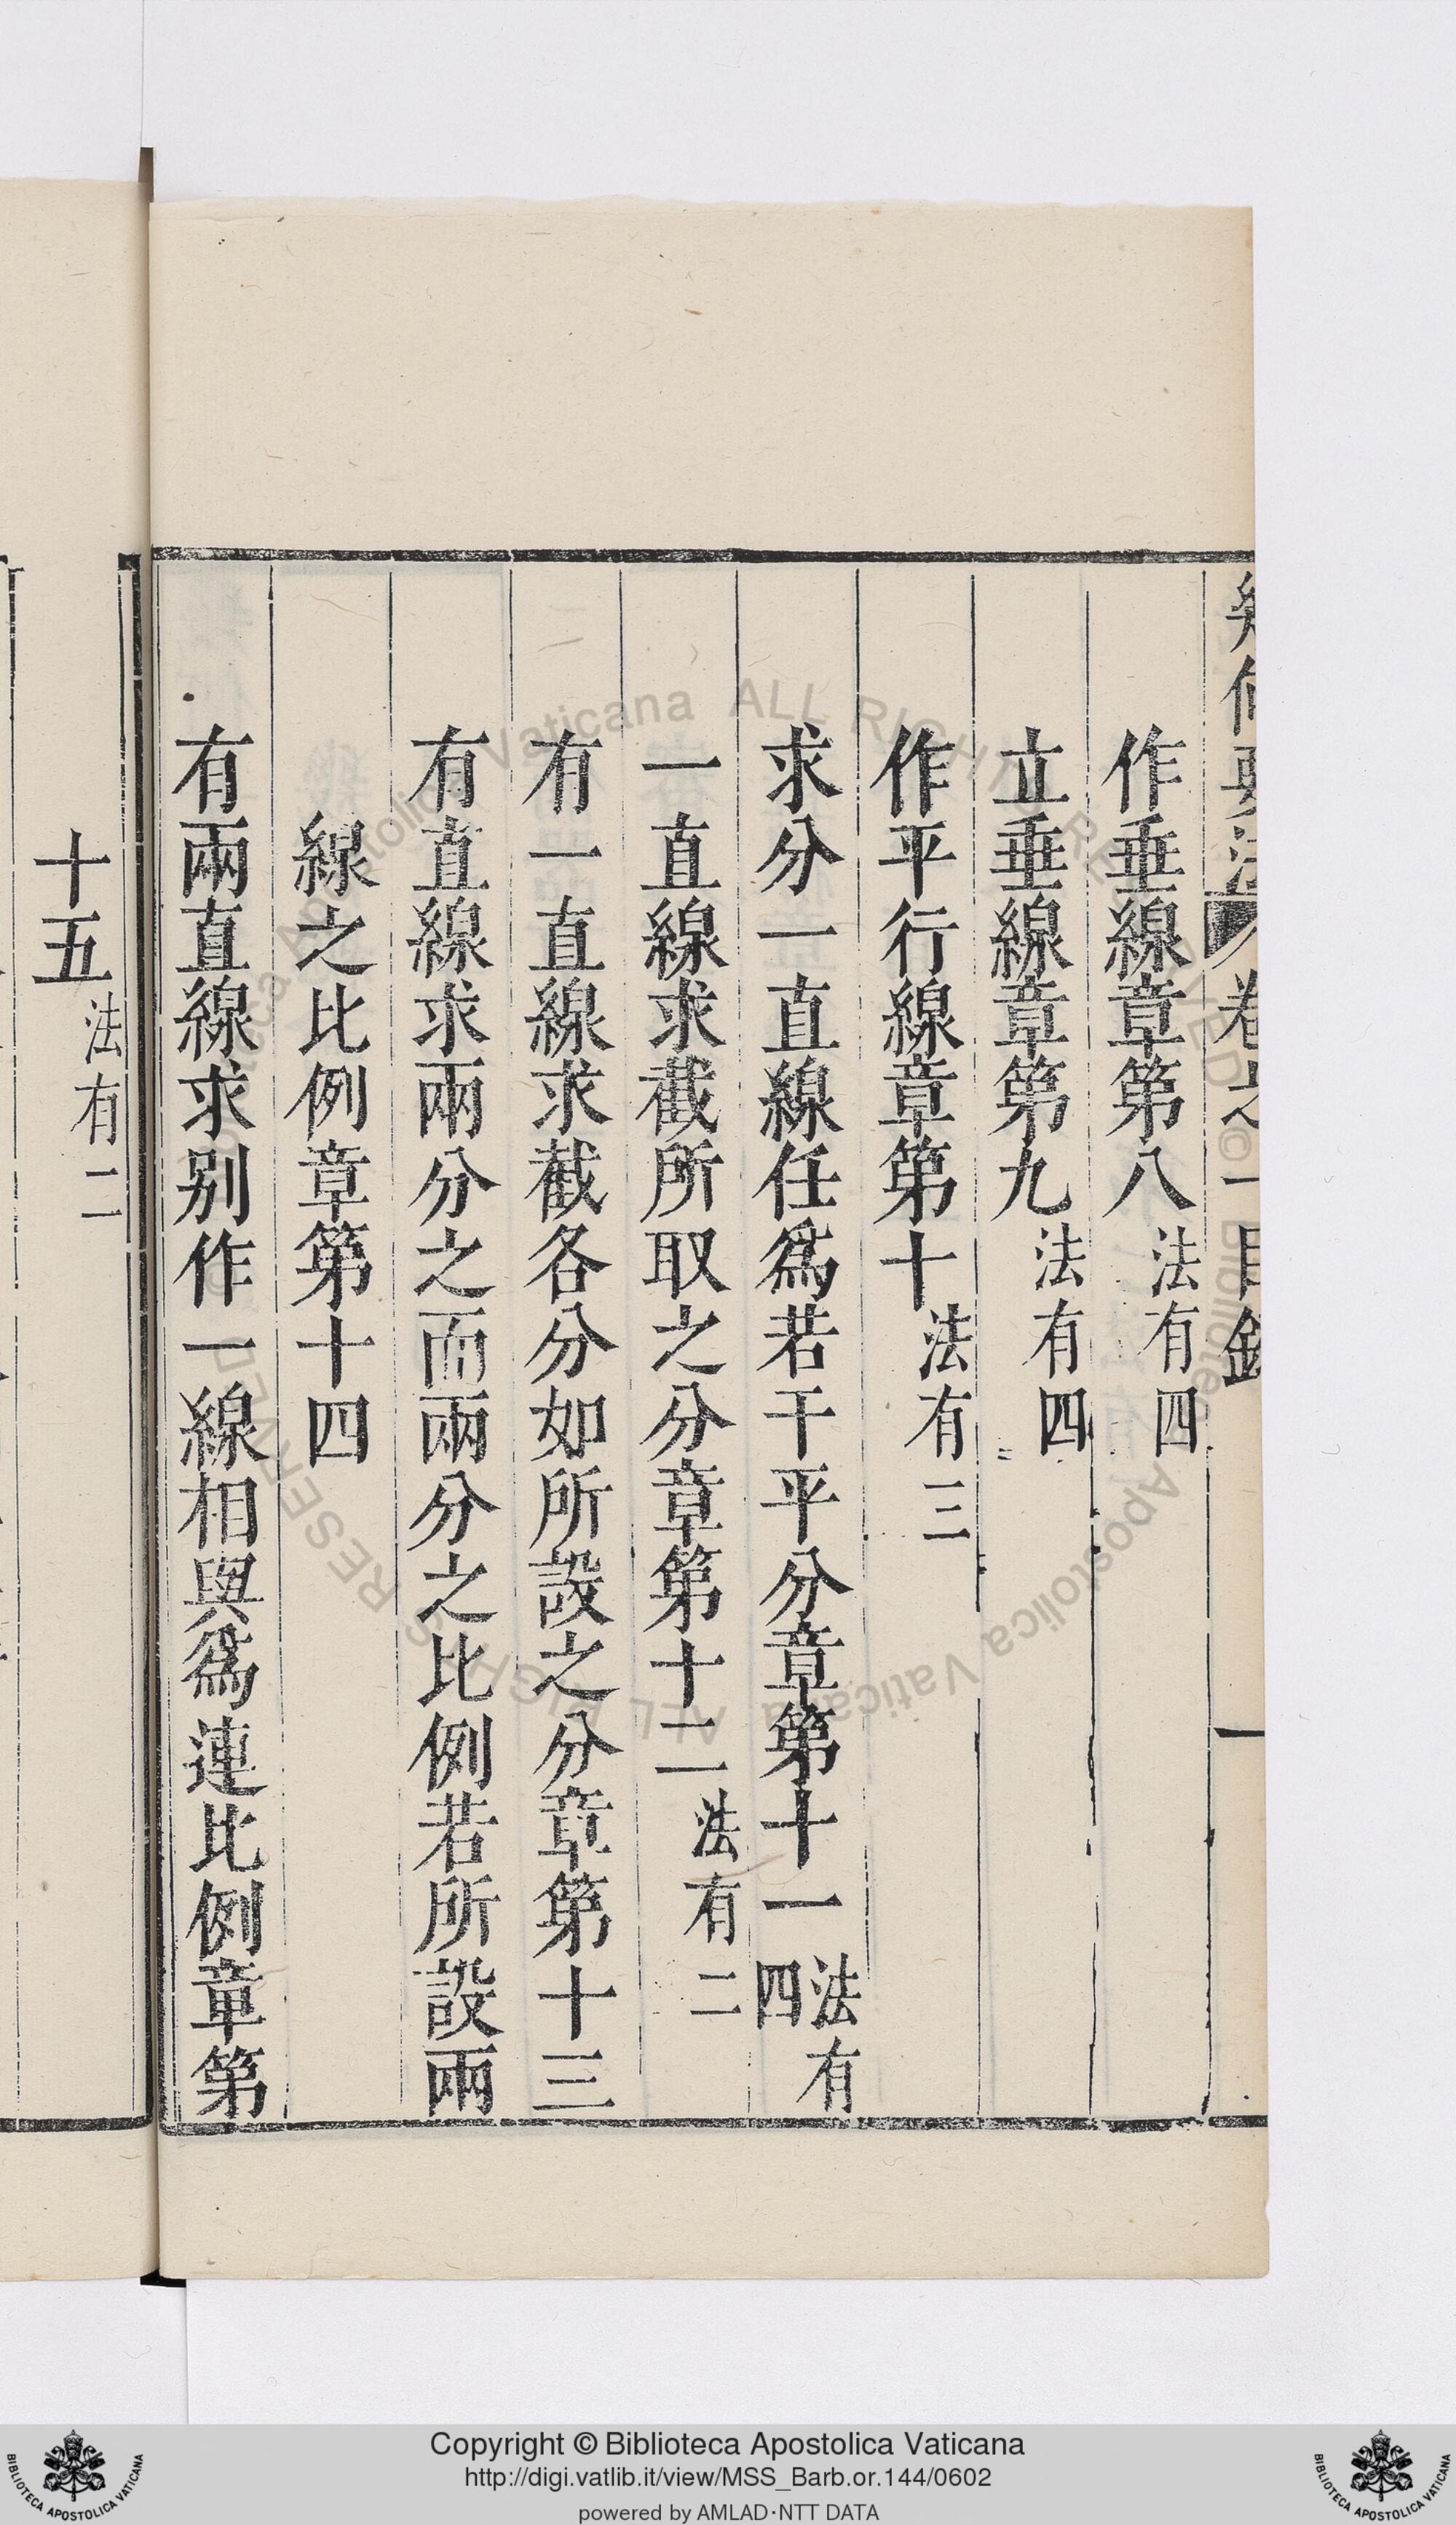 幾何要法 卷之一目錄 一
作垂線章第八 法有四
立垂線章第九 法有四
作平行線章第十 法有三
求分一直線任爲若干平分章第十一 法有四
一直線求截所取之分章第十二 法有二
有一直線求截各分如所設之分章第十三
有直線求兩分之而兩分之比例若所設兩
線之比例章第十四
有兩直線求别作一線相與爲連比例章第
十五 法有二
Copyright © Biblioteca Apostolica Vaticana
http://digi.vatlib.it/view/MSS_Barb.or.144/0602
powered by AMLAD·NTT DATA
BIBLIOTECA APOSTOLICA VATICANA
BIBLIOTECA APOSTOLICA VATICANA